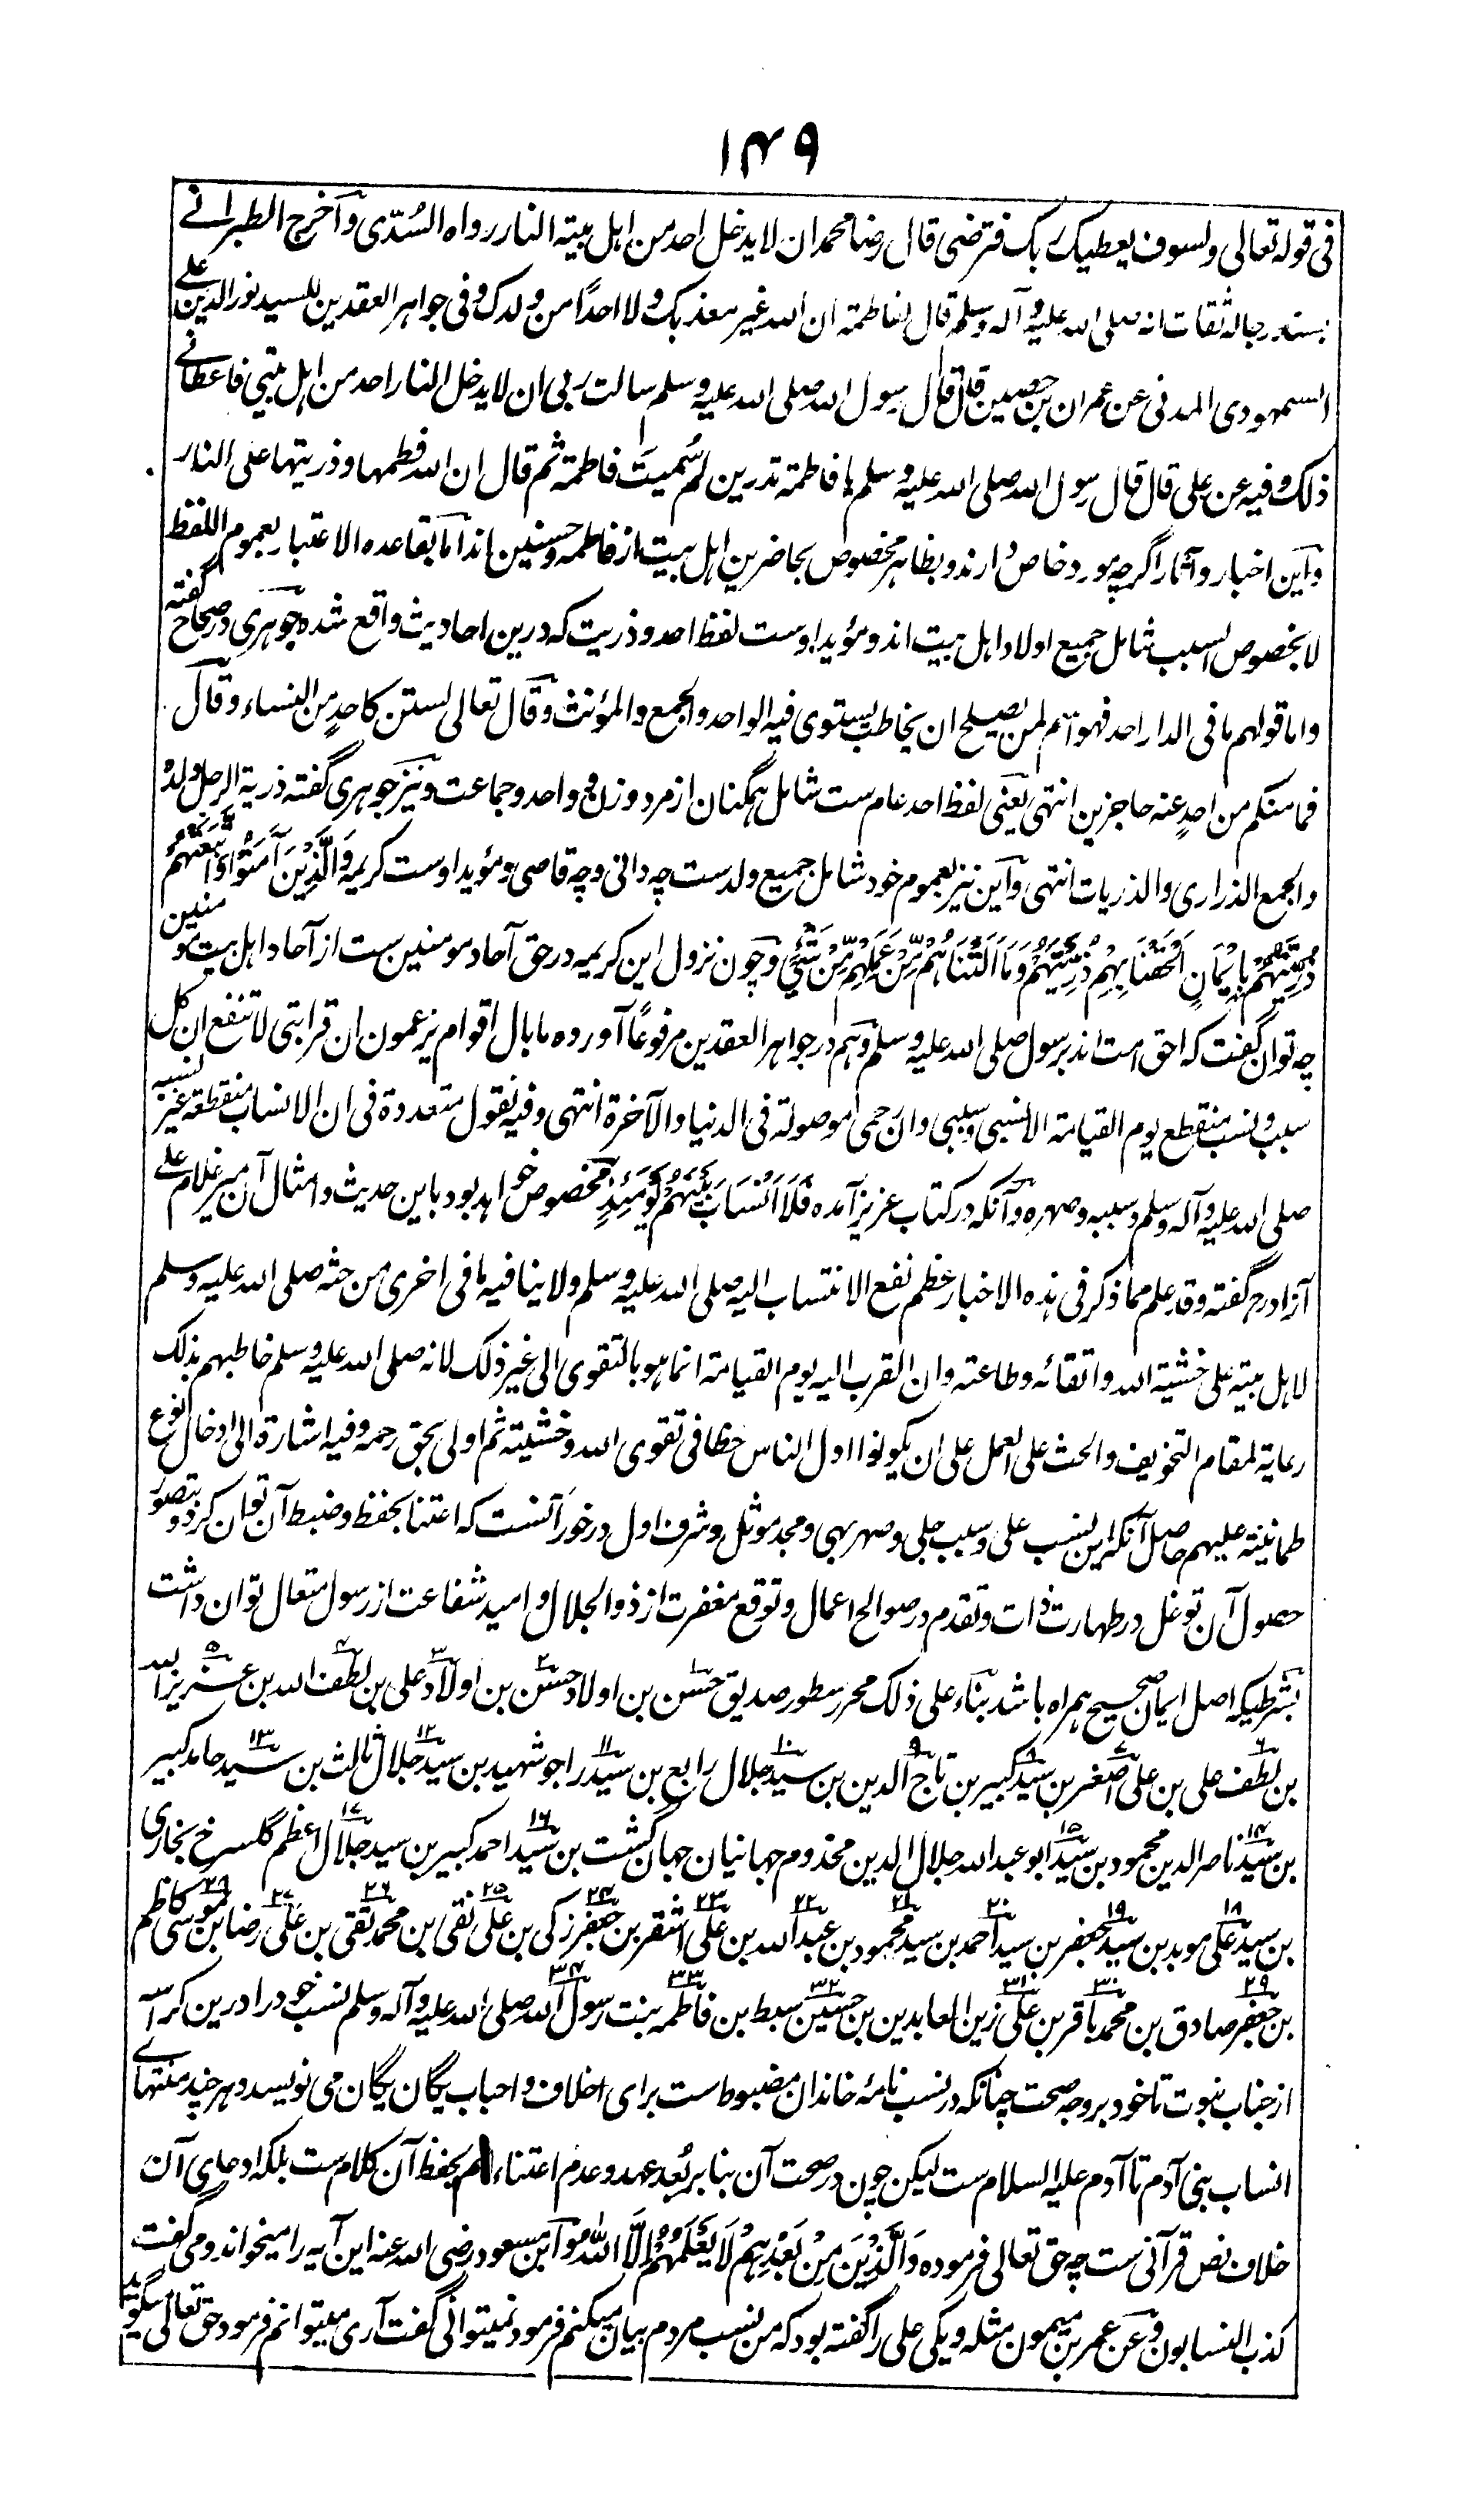 ۱۴۹
فی قوله تعالی ولسوف یعطیک ربک فترضی قال رضا محمد ان لا یدخل احد من اهل بیته النار رواه السُدّی وآخرج الطبرانے
بسند رجاله ثقات انه صلی الله علیه وآله وسلم قال لفاطمة ان الله غیر معذبک ولا احدًا من ولدک وفی جواهر العقدین للسید نور الدین علے
السمهودی المدنی عن عمران بن حصین قال قال رسول الله صلی الله علیه وسلم سالت ربی ان لا یدخل النار احد من اهل بیتی فاعطانے
ذلک وفیه عن علی قال قال رسول الله صلی الله علیه وسلم یا فاطمة تدرین لم سُمیتَ فاطمة ثم قال ان الله فطمها وذریتها علی النار
وآین اخبار وآثار اگرچه مورد خاص دارند وبظاهر مخصوص بحاضرین اهل بیت از فاطمه وحسنین اند اما بقاعده الاعتبار بعموم اللفظ
لا بخصوص السبب شامل جمیع اولاد اهل بیت اند ومؤید اوست لفظ احد وذریت که درین احادیث واقع شده جوهری در صحاح گفته
واما قولهم ما فی الدار احد فهو اسم لمن یصلح ان یخاطب یستوی فیه الواحد والجمع والمؤنث وقال تعالی لستن کاحدٍ من النساء وقال
فما منکم من احدٍ عنه حاجزین انتهی یعنی لفظ احد عام ست شامل همگنان از مرد وزن وواحد وجماعت ونیز جوهری گفته ذریة الرجل ولدُهُ
والجمع الذراری والذریات انتهی وآین نیز بعموم خود شامل جمیع ولدست چه دانی وچه قاصی ومؤید اوست کریمه وَالَّذِیْنَ آمَنُوْا وَاتَّبَعَتْهُمْ
ذُرِّیَّتُهُمْ بِاِیْمَانٍ اَلْحَقْنَا بِهِمْ ذُرِّیَّتَهُمْ وَمَا اَلَتْنَاهُمْ مِّنْ عَمَلِهِمْ مِّنْ شَیْءٍ وچون نزول این کریمه در حق آحاد مومنین ست از آحاد اهل بیت مومنین
چه توان گفت که احق امت اند برسول صلی الله علیه وسلم وهم در جواهر العقدین مرفوعًا آورده ما بال اقوام یزعمون ان قرابتی لا تنفع ان کل
سبب ونسب منقطع یوم القیامة الا نسبی وسببی وان رحمی موصولة فی الدنیا والآخرة انتهی وفیه نقول متعددة فی ان الانساب منقطعة غیر نسبه
صلی الله علیه وآله وسلم وسببه وصهره وآنکه در کتاب عزیز آمده فَلَا اَنْسَابَ بَیْنَهُمْ یَوْمَئِذٍ مخصوص خواهد بود باین حدیث وامثال آن میر غلام علے
آزاد رح گفته وقد علم مما ذکر فی هذه الاخبار عظم نفع الانتساب الیه صلی الله علیه وسلم ولا ینافیه ما فی اخری من حثه صلی الله علیه وسلم
لاهل بیته علی خشیة الله واتقائه وطاعته وان القرب الیه یوم القیامة انما هو بالتقوی الی غیر ذلک لانه صلی الله علیه وسلم خاطبهم بذلک
رعایة لمقام التخویف والحث علی العمل علی ان یکونوا اول الناس حظا فی تقوی الله وخشیته ثم اولی بحق رحمه وفیه اشارة الی ادخال نوع
طمانینة علیهم حاصل آنکه این نسب علی وسبب جلی وصهر بهی ومجد موثل وشرف اول درخور آنست که اعتنا بحفظ وضبط آن توان کرد وبتصور
حصول آن توغل در طهارت ذات وتقدم در صوالح اعمال وتوقع مغفرت از ذو الجلال وامید شفاعت از رسول متعال توان داشت
بشرطیکه اصل ایمان صحیح همراه باشد بناء علی ذلک محرر سطور صدیق حسن ۱ بن اولاد حسن ۲ بن اولاد علی ۳ بن لطف الله ۴ بن عزیز الله ۵
بن لطف علی ۶ بن علی اصغر ۷ بن سید کبیر ۸ بن تاج الدین ۹ بن سید جلال رابع ۱۰ بن سید راجو شهید ۱۱ بن سید جلال ثالث ۱۲ بن سید حامد کبیر ۱۳
بن سید ناصر الدین محمود ۱۴ بن سید ابو عبد الله جلال الدین مخدوم جهانیان جهان گشت ۱۵ بن سید احمد کبیر ۱۶ بن سید جلال اعظم گلسرخ بخاری ۱۷
بن سید علی موید ۱۸ بن سید جعفر ۱۹ بن سید احمد ۲۰ بن سید محمود ۲۱ بن عبد الله ۲۲ بن علی اشقر ۲۳ بن جعفر زکی ۲۴ بن علی نقی ۲۵ بن محمد تقی ۲۶ بن علی رضا ۲۷ بن موسی کاظم ۲۸
بن جعفر صادق ۲۹ بن محمد باقر ۳۰ بن علی زین العابدین ۳۱ بن حسین سبط ۳۲ بن فاطمه ۳۳ بنت رسول الله ۳۴ صلی الله علیه وآله وسلم نسب خود را درین کراسه
از جناب نبوت تا خود بروجه صحت چنانکه در نسب نامهٔ خاندان مضبوط ست برای اخلاف واحباب یگان یگان می نویسد وهرچند منتهاے
انساب بنی آدم تا آدم علیه السلام ست لیکن چون در صحت آن بنا بر بُعد عهد وعدم اعتناء امم بحفظ آن کلام ست بلکه ادعای آن
خلاف نص قرآنی ست چه حق تعالی فرموده وَالَّذِیْنَ مِنْ بَعْدِهِمْ لَا یَعْلَمُهُمْ اِلَّا اللهُ وآبن مسعود رضی الله عنه این آیه را میخواند ومی گفت
کذب النسابون وعن عمر بن میمون مثله ویکی علی را گفته بود که من نسب مردم بیان میکنم فرمود نمیتوانی گفت آری میتوانم فرمود حق تعالی میگوید